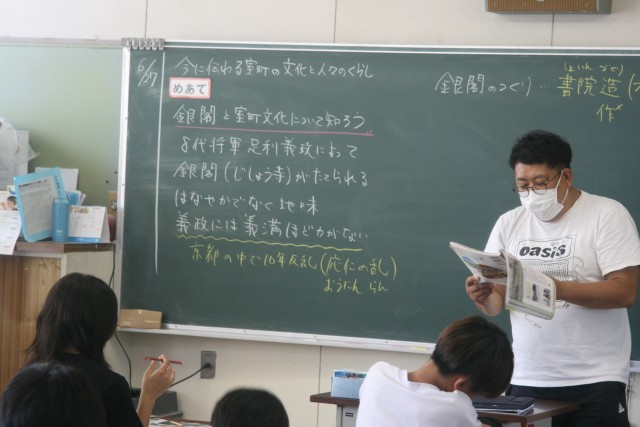 6/27
今に伝わる室町の文化と人々のくらし
めあて
銀閣と室町文化について知ろう
8代将軍足利義政によって
銀閣(じしょう寺)がたてられる
はなやかでなく地味
義政には義満ほど力がない
京都の中で10年反乱(応仁の乱)
おうにん らん
しょいん づくり
銀閣のつくり…書院造(
作
oasis